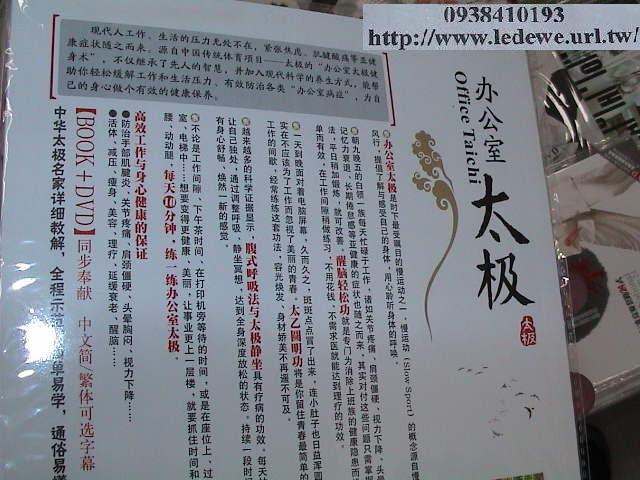 0938410193
http://www.ledewe.url.tw/
现代人工作、生活的压力无处不在，紧张焦虑、肌腱酸痛等亚健
康症状随之而来。源自中国传统体育项目——太极的“办公室太极健
身术”，不仅继承了先人的智慧，并加入现代科学的养生方式，能帮
助你轻松缓解工作和生活压力、有效防治各类“办公室病症”，为自
己的身心做个有效的健康保养。
办公室
Office Taichi
太极
太极
办公室太极是时下最受瞩目的慢运动之一，慢运动（Slow Sport）的概念源自慢
风行，提倡了解与感受自己的身体，用心聆听身体的呼唤。
朝九晚五的白领一族每天忙碌于工作，诸如关节疼痛、肩颈僵硬、视力下降、头晕
记忆力衰退、长期倦怠感等亚健康的症状也随之而来，其实对付这些问题只需掌握
法，平日稍加锻炼，就可改善。醒脑轻松功就是专门为消除上班族的健康隐患而
单而有效，在工作间隙稍做练习，不用花钱，不需求医就能达到理疗的功效。
一天到晚面对着电脑屏幕，久而久之，斑斑点点冒了出来，连小肚子也日益浑圆
实在不应该为了工作而忽视了美丽的青春。太乙圆明功将是你留住青春最简单的
工作的间歇，经常练练这套功法，容光焕发，身材娇美不再遥不可及。
越来越多的科学证据显示，腹式呼吸法与太极静坐具有疗病的功效。每天
让自己独处，通过调整呼吸，静坐冥想，达到全身深度放松的状态。持续一段时间
有身心舒畅、焕然一新的感觉。
不论是工作间隙、下午茶时间、在打印机旁等待的时间，或是在座位上、过
室、电梯中……想要变得更健康、美丽，让事业更上一层楼，就要抓住时间和
腰、动动腿，每天10分钟，练一练办公室太极。
高效工作与身心健康的保证
●防治手部肌腱炎、关节疼痛、肩颈僵硬、头晕胸闷、视力下降……
●活体、减压、瘦身、美容、理疗、延缓衰老、醒脑……
【BOOK+DVD】同步奉献 中文简/繁体可选字幕
中华太极名家详细教解，全程示范 简单易学，通俗易懂